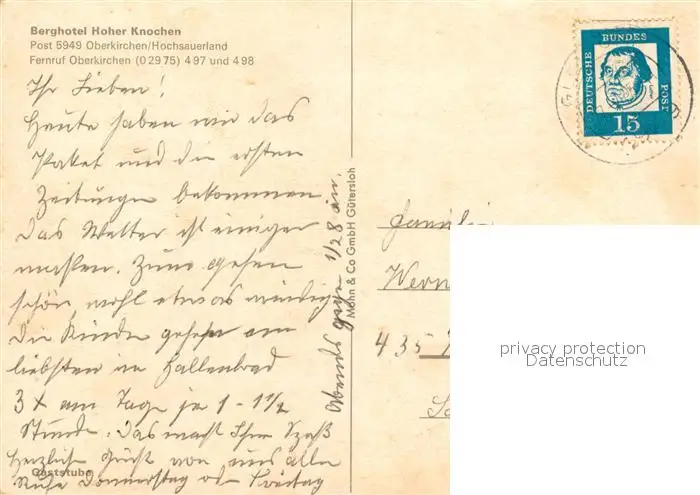 Berghotel Hoher Knochen
Post 5949 Oberkirchen/Hochsauerland
Fernruf Oberkirchen (0 29 75) 4 97 und 4 98
Ihr Lieben!
Heute haben wir das
Paket und die ersten
Zeitungen bekommen.
Das Wetter ist einiger
maßen. Zum gehen
schön, wohl etwas windig
Die Kinder gehen am
liebsten ins Hallenbad
3 x am Tage je 1 - 1 1/2
Stunde. Das macht Ihnen Spaß
Herzlich grüßt von uns allen
Rufe Donnerstag od. Freitag
Abends gegen 1/2 8 an.
Gaststube
Mohn & Co GmbH Gütersloh
DEUTSCHE BUNDES POST
15
Familie
Wern
435
privacy protection
Datenschutz